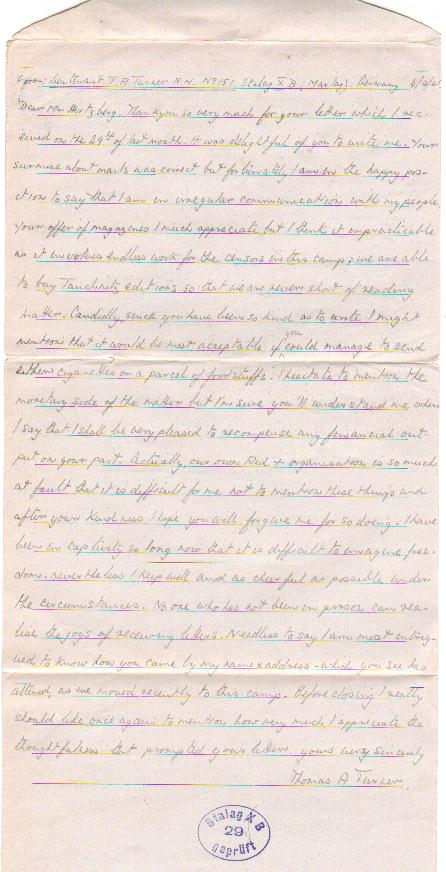 From: Lieutenant T.A Turner R.N. No 151. Stalag X B (Marlag). Germany 4/6/41.
Dear Mr Hertzberg. Thankyou so very much for your letter which I rec-
eived on the 29th of last month. It was delightful of you to write me. Your
surmise about mails was correct but fortunately I am in the happy pos-
ition to say that I am in irregular communication with my people
Your offer of magazines I much appreciate but I think it impracticable
as it involves endless work for the censors in this camp; we are able
to buy Tauchnitz editions so that we are never short of reading
matter. Candidly, since you have been so kind as to write I might
mention that it would be most acceptable if you could manage to send
either cigarettes or a parcel of foodstuffs. I hesitate to mention the
monetary side of the matter but I'm sure you'll understand me when
I say that I shall be very pleased to recompense any financial out-
put on your part. Actually, our own Red + organisation is so much
at fault that it is difficult for me not to mention these things and
after your kindness I hope you will forgive me for so doing. I have
been in captivity so long now that it is difficult to imagine free-
dom. nevertheless I keep well and as cheerful as possible under
the circumstances. No one who has not been in prison can rea-
lise the joys of receiving letters. Needless to say I am most intrig-
ued to know how you came by my name & address - which you see has
altered, as we moved recently to this camp. Before closing I really
should like once again to mention how very much I appreciate the
thoughtfulness that prompted your letter. yours very sincerely
Thomas A Turner.
Stalag X B
29
geprüft